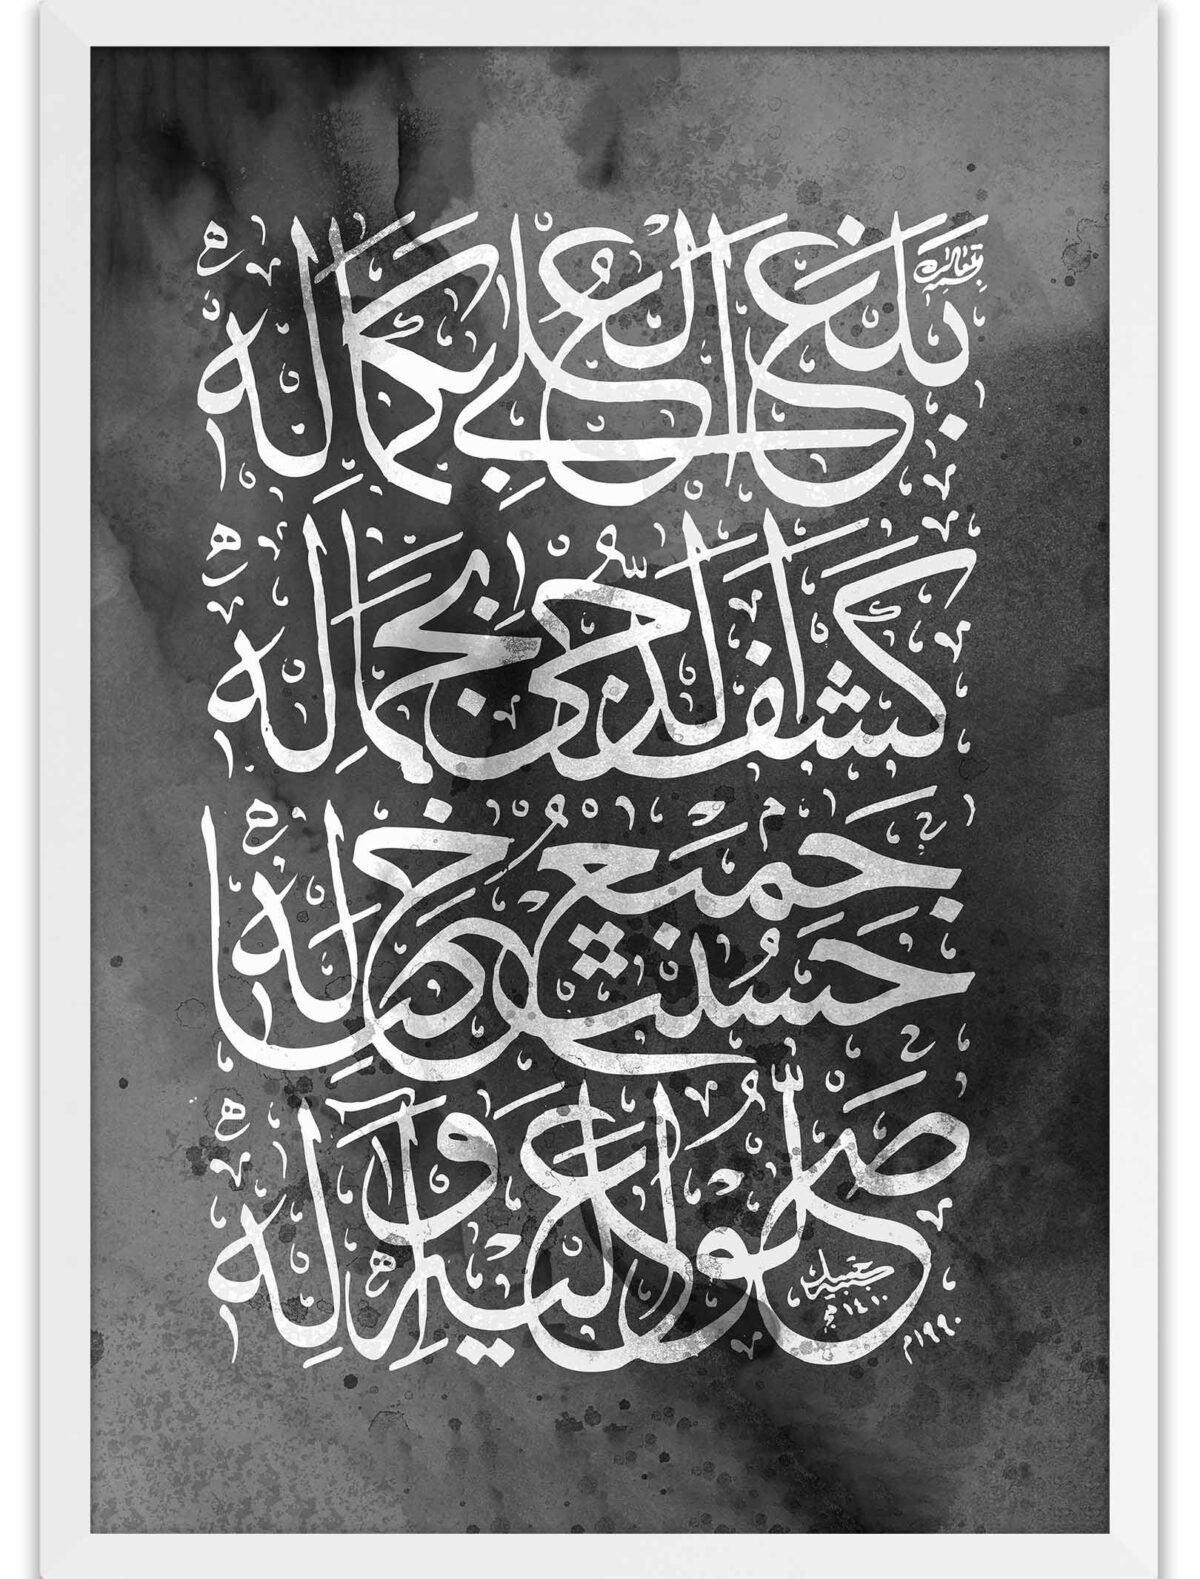 بَلَغَ العُلَى بِكَمَالِهِ
كَشَفَ الدُّجَى بِجَمَالِهِ
حَسُنَتْ جَمِيعُ خِصَالِهِ
صَلُّوا عَلَيْهِ وَآلِهِ
١٤١٠ هـ
١٩٩٠م